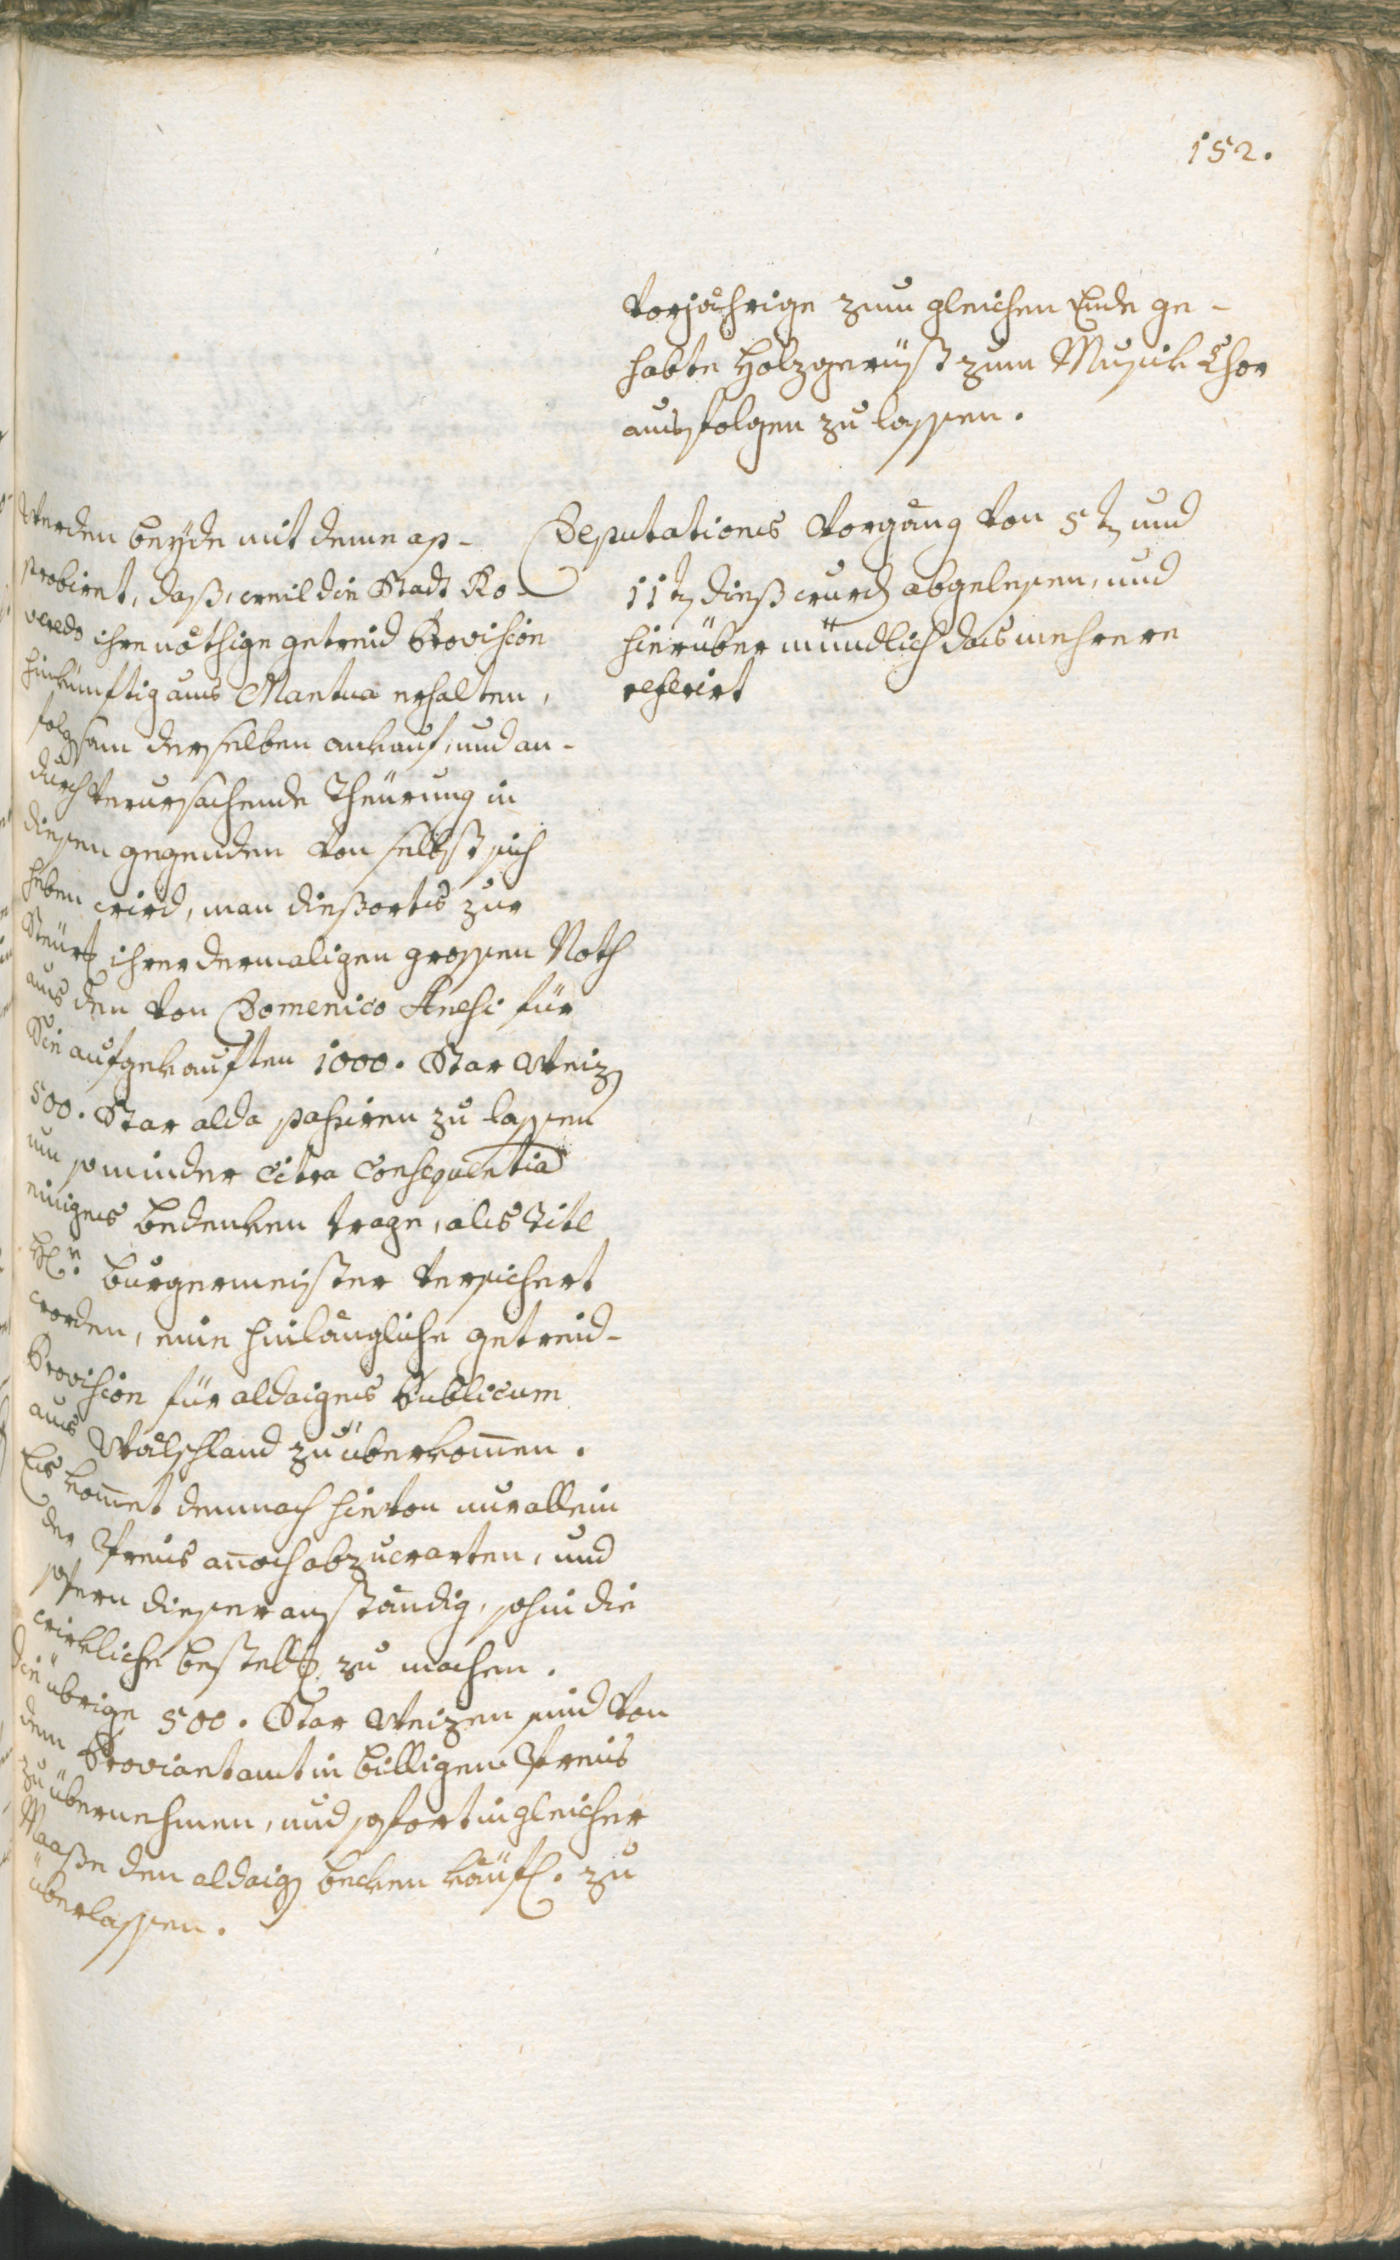 152.
vorjährige zum gleichen Ende ge-
habte Holzgerüst zum Musik Chor
ausfolgen zu lassen.
Deputations Vorgang von 5t, und
11t, dieß wurd, abgelesen, und
hierüber mündlich das mehrere
referirt
Werden beÿde mit deme ap-
probirt, daß, weil die Stadt Ro-
veredo ihre nöthige getreid Provision
hinkünftig aus Mantua erhalten,
folgsam derselben ankauf, und an-
durch verursachende Theürung in
diesen gegenden von selbst sich
heben wird, man dießorts zur
Steürg ihrer dermaligen grossen Noth
aus den von Domenico Anesi für
Sie aufgekauften 1000. Star Weiz,
500. Star alda passiren zu lassen
um sominder citra consequentia
einiges bedenken trage, als Titl
H: n. burgermeister versichert
worden, eine hinlängliche getreid-
Provision für aldaiges Publicum
aus Wälschland zu überkom̄en.
Es kom̄et demnach hievon nur allein
der Preis an̄och abzuwarten, und
sofern dieser anständig, sohin die
wirkliche bestellg zu machen.
Die übrige 500. Star Weizen sind von
dem Proviantamt in billigem Preis
zu übernehmen, und sofort in gleicher
Maaße den aldaig, becken käufl. zu
überlassen.